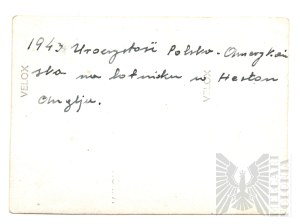 1943. Uroczystość Polsko-Amerykań
ska na lotnisku w Heston
Anglja.
VELOX
VELOX
VELOX